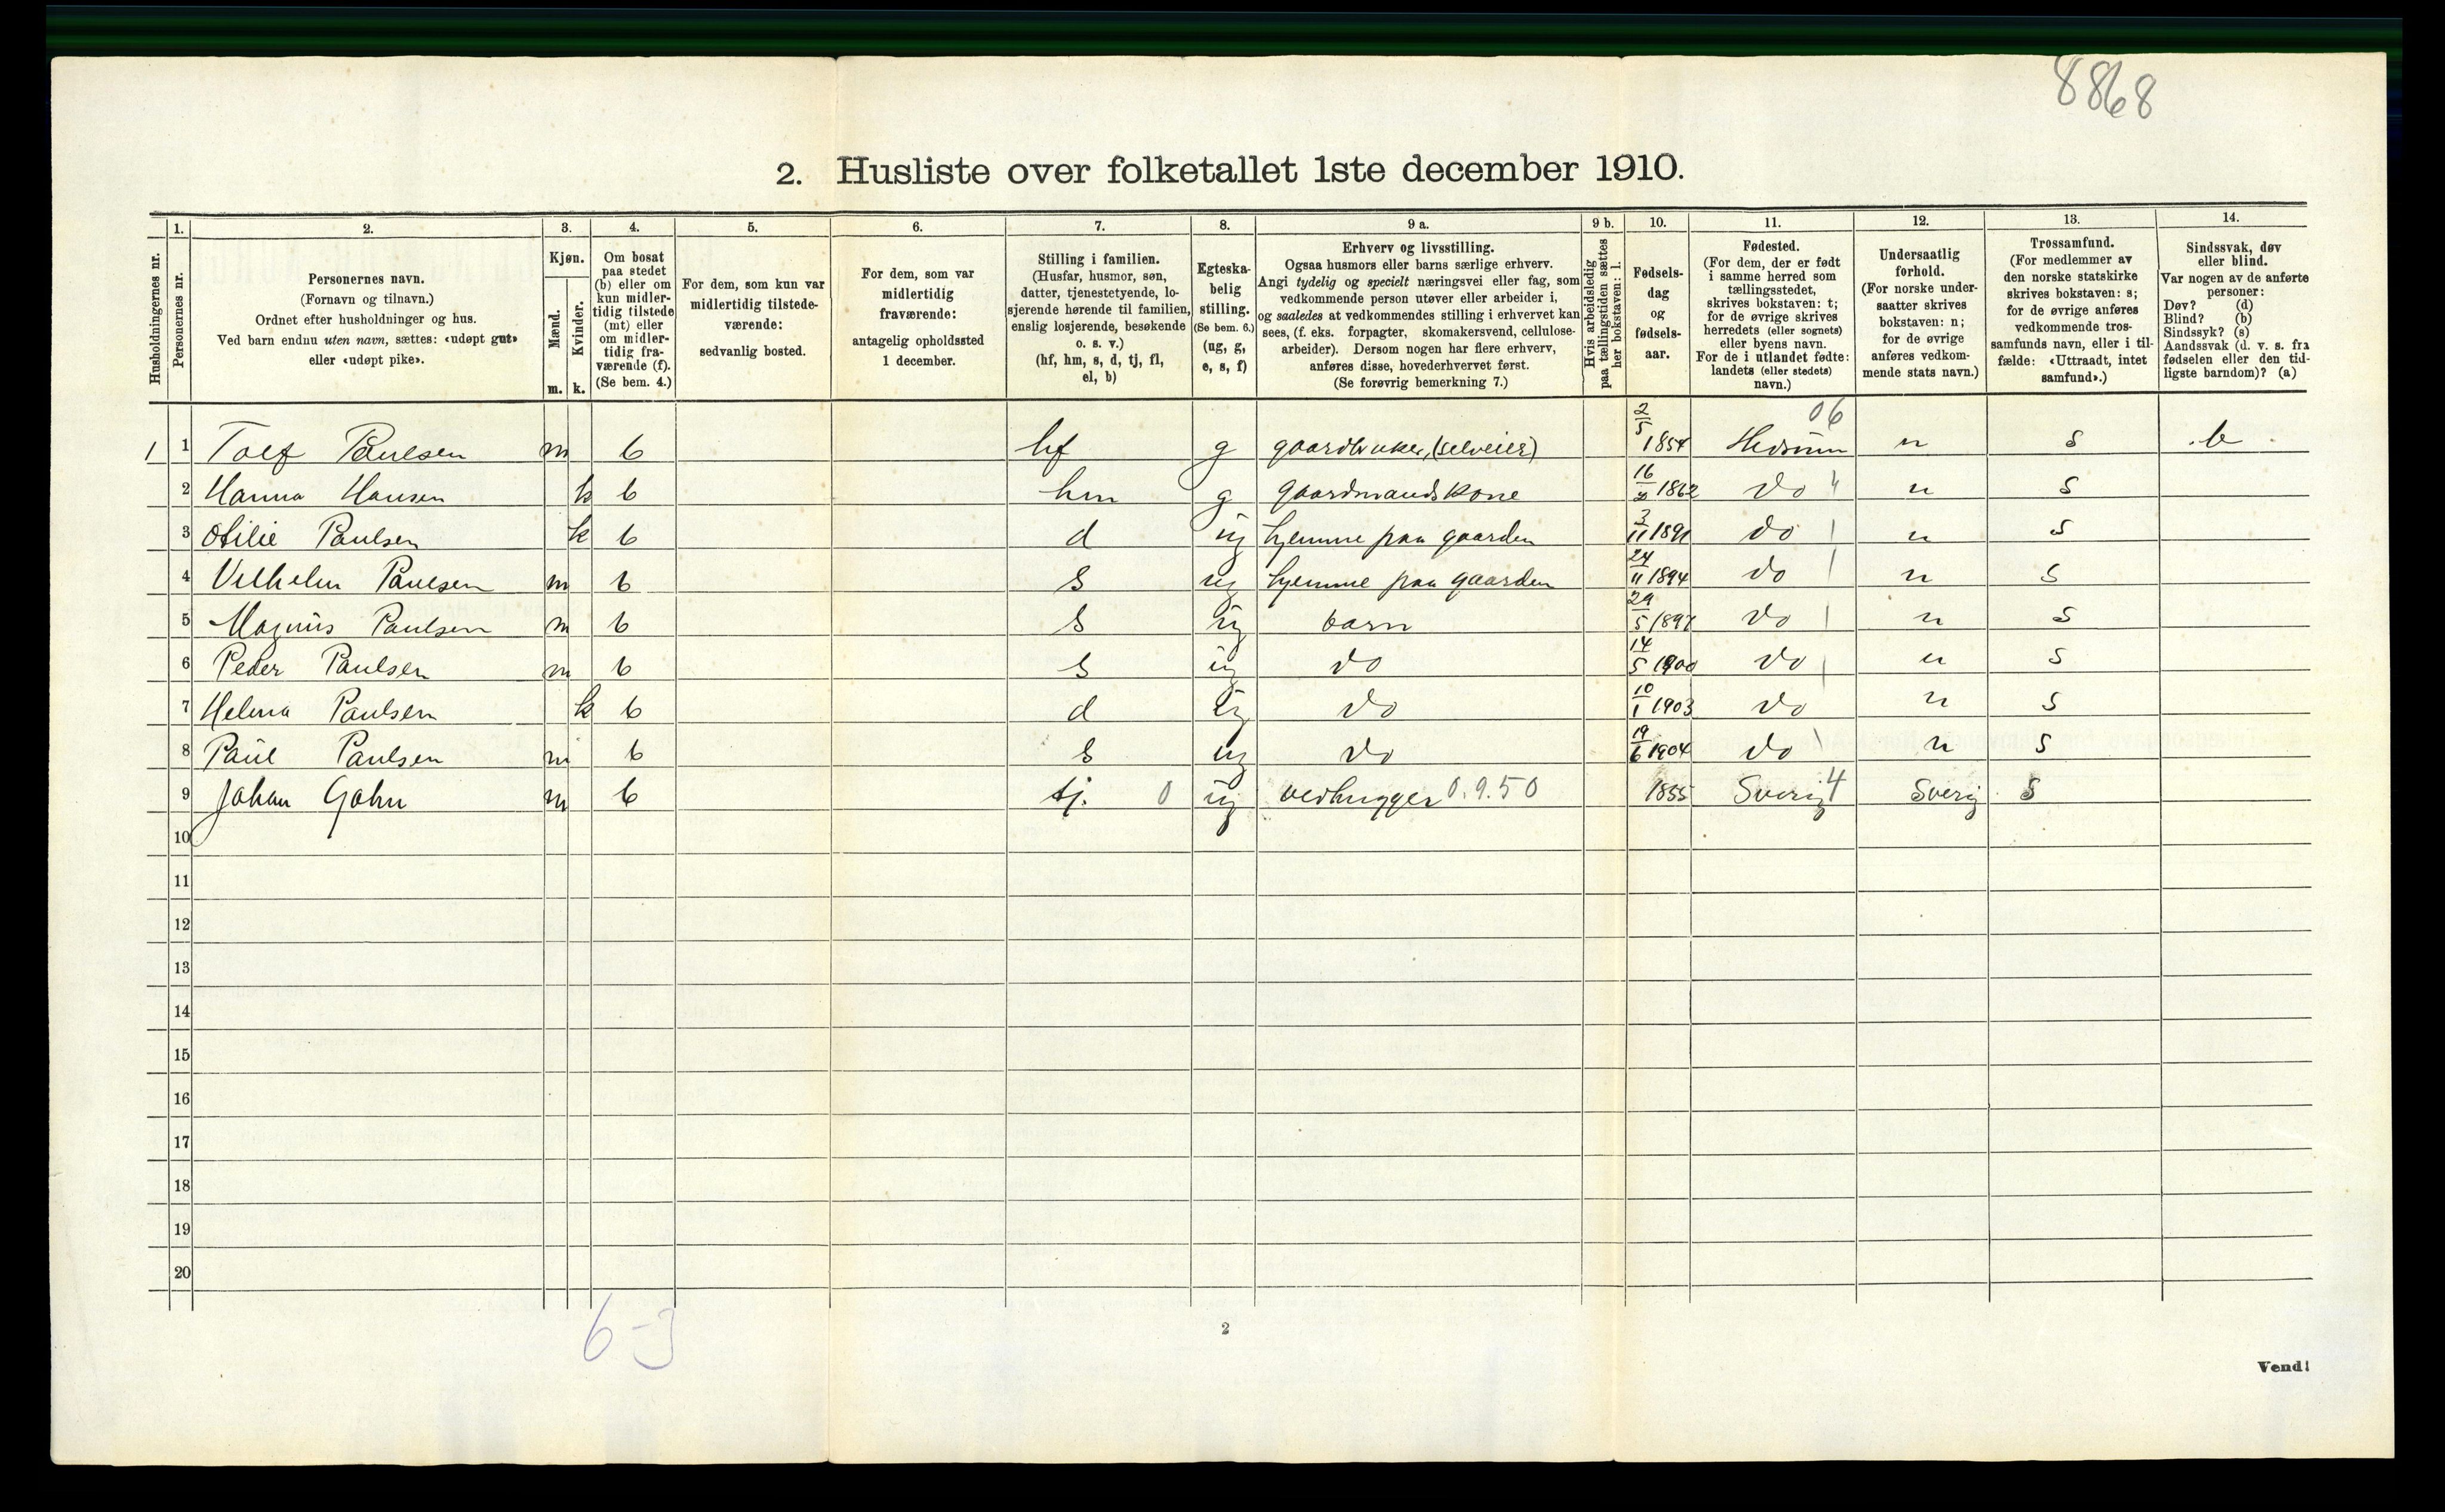 8868
2. Husliste over folketallet 1ste december 1910.
Husholdningernes nr.
1.
Personernes nr.
2.
Personernes navn.
(Fornavn og tilnavn.)
Ordnet efter husholdninger og hus.
Ved barn endnu uten navn, sættes: «udøpt gut»
eller «udøpt pike».
3.
Kjøn.
Mænd.
Kvinder.
m. k.
4.
Om bosat
paa stedet
(b) eller om
kun midler-
tidig tilstede
(mt) eller
om midler-
tidig fra-
værende (f).
(Se bem. 4.)
5.
For dem, som kun var
midlertidig tilstede-
værende:
sedvanlig bosted.
6.
For dem, som var
midlertidig
fraværende:
antagelig opholdssted
1 december.
7.
Stilling i familien.
(Husfar, husmor, søn,
datter, tjenestetyende, lo-
sjerende hørende til familien,
enslig losjerende, besøkende
o. s. v.)
(hf, hm, s, d, tj, fl,
el, b)
8.
Egteska-
belig
stilling.
(Se bem. 6.)
(ug, g,
e, s, f)
9 a.
Erhverv og livsstilling.
Ogsaa husmors eller barns særlige erhverv.
Angi tydelig og specielt næringsvei eller fag, som
vedkommende person utøver eller arbeider i,
og saaledes at vedkommendes stilling i erhvervet kan
sees, (f. eks. forpagter, skomakersvend, cellulose-
arbeider). Dersom nogen har flere erhverv,
anføres disse, hovederhvervet først.
(Se forøvrig bemerkning 7.)
9 b.
Hvis arbeidsledig
paa tællingstiden sættes
her bokstaven: l.
10.
Fødsels-
dag
og
fødsels-
aar.
11.
Fødested.
(For dem, der er født
i samme herred som
tællingsstedet,
skrives bokstaven: t;
for de øvrige skrives
herredets (eller sognets)
eller byens navn.
For de i utlandet fødte:
landets (eller stedets)
navn.)
12.
Undersaatlig
forhold.
(For norske under-
saatter skrives
bokstaven: n;
for de øvrige
anføres vedkom-
mende stats navn.)
13.
Trossamfund.
(For medlemmer av
den norske statskirke
skrives bokstaven: s;
for de øvrige anføres
vedkommende tros-
samfunds navn, eller i til-
fælde: «Uttraadt, intet
samfund».)
14.
Sindssvak, døv
eller blind.
Var nogen av de anførte
personer:
Døv? (d)
Blind? (b)
Sindssyk? (s)
Aandssvak (d. v. s. fra
fødselen eller den tid-
ligste barndom)? (a)
06
1 1 Tolf Paulsen m b hf g gaardbruker, (selveier) 2/5 1854 n s b
2 Hanna Hansen k b hm g gaardmandskone 16 1862 do n s
3 Otilie Paulsen k b d ug hjemme paa gaarden 3/11 1891 do n s
4 Vilhelm Paulsen m b s ug hjemme paa gaarden 24/11 1894 do n s
5 Magnus Paulsen m b s ug barn 29/5 1897 do n s
6 Peder Paulsen m b s ug do 14/5 1900 do n s
7 Helena Paulsen k b d ug do 10/1 1903 do n s
8 Paul Paulsen m b s ug do 19/6 1904 do n s
9 Johan Gahn m b tj. 0 ug vedhugger 0.9.50 1855 Sverig 4 Sverig s
10
11
12
13
14
15
16
17
18
19
20
6-3
2
Vend!